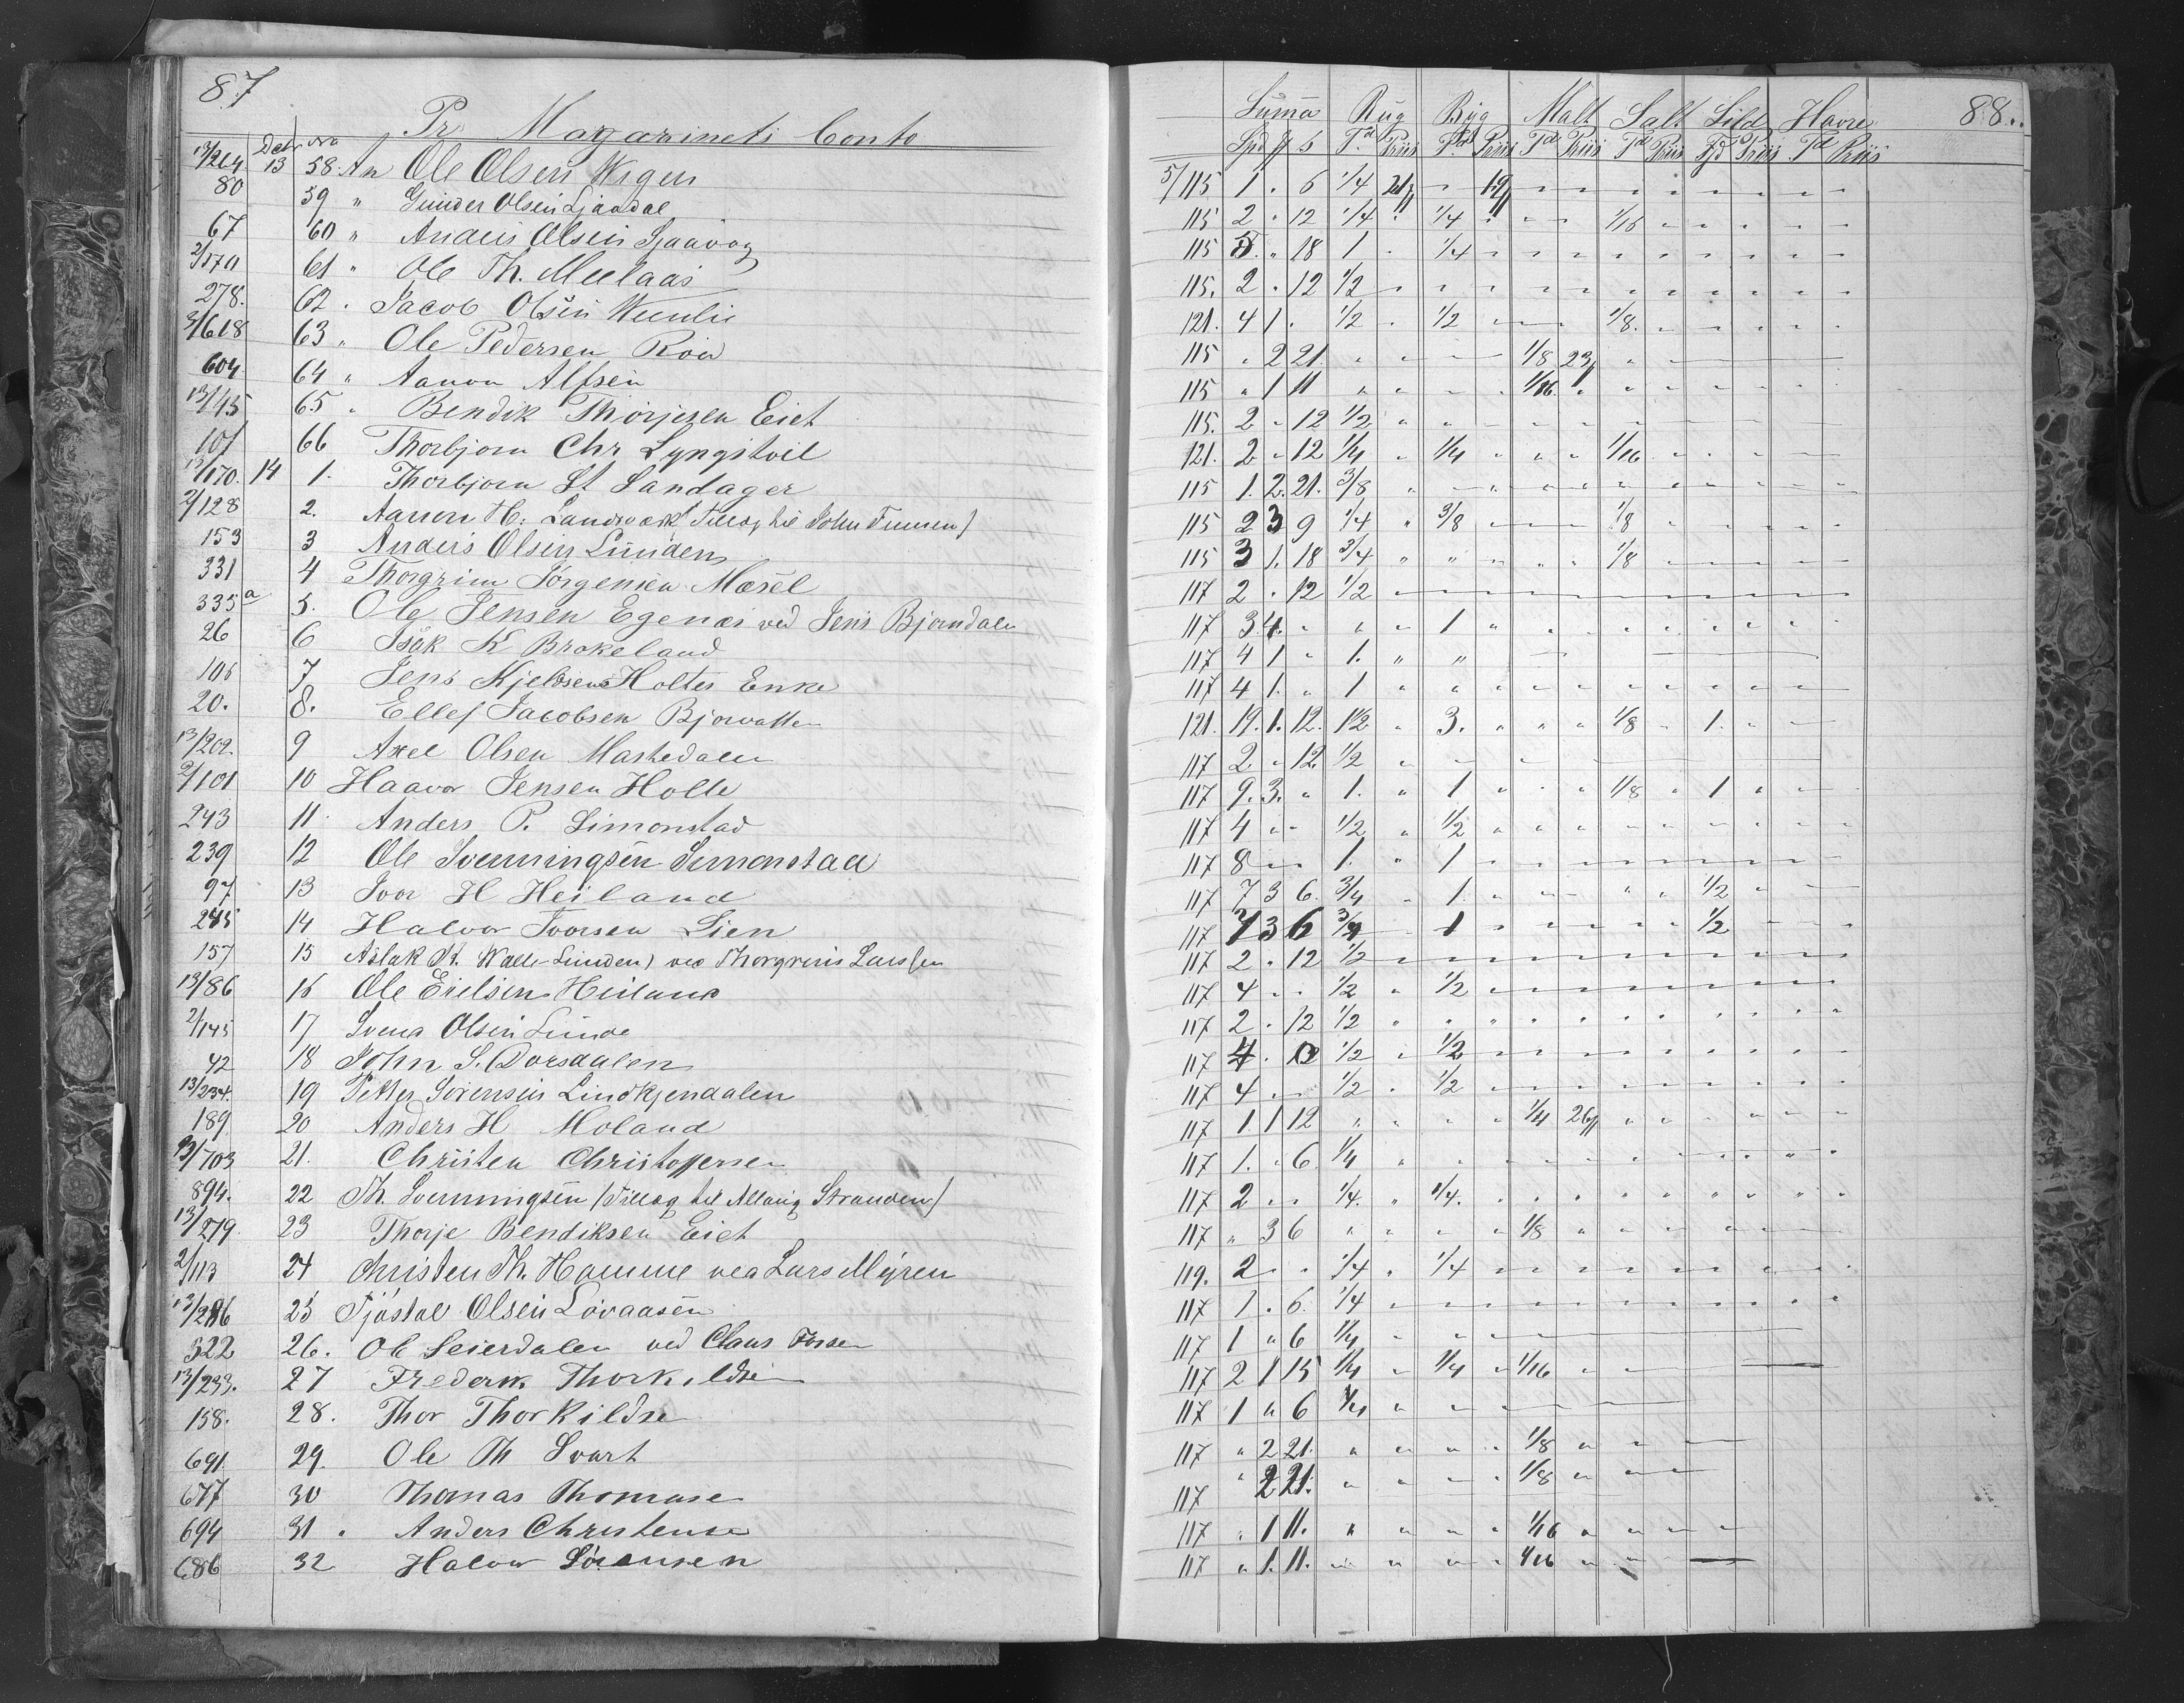 87
Pr Magazinets Conto
13/264 Dcbr 13 No 58. An Ole Olsen Wegen
80 59 " Gunder Olsen Ljaadal
67 60 " Anders Olsen Sjaavaag
2/170 61 " Ole Th. Meelaas
278. 62 . Jacob Olsen
3/618 63 " Ole Pedersen
604 64 " Aanon Alfsen
13/45 65 " Bendik Thorjesen Eiet
101 66 Thorbjorn Chr Lyngstvil
13/170. 14 1. Thorbjorn St Sandager
2/128 2. Aanon H: (Tillæg til John)
153 3 Anders Olsen Lunden
331 4 Thorgrim Jørgensen Mæsel
335 a 5. Ole Jensen Egenæs ved Jens Bjorndalen
26 6 Isak K Brokeland
106 7 Jens Kjeldsens Holtes Enke
20. 8. Ellef Jacobsen Bjorvatten
13/202. 9 Axel Olsen Maskedalen
2/101 10 Haavor Jensen Holte
243 11. Anders P. Simonstad
239 12 Ole Svenningsen Simonstad
97 13 Ivar H Heiland
245 14 Halvor Ivorsen Lien
157 15 Aslak St. Walle Lunden) ved Thorgrims Larssen
13/86 16 Ole Eielsen Heiland
2/145 17 Svend Olsen Lunde
42 18 John S. Dorsdalen
13/234. 19 Petter Sørensen Lindkjendalen
189 20 Anders H Moland
13/703 21. Christen Christoffersen
894. 22 Th. Svenningsen (Tillæg til Stranden)
13/279. 23 Thorje Bendiksen Eiet
2/113 24 Christen Th. Hamme ved Lars Myren
13/286 25 Tjøstal Olsen Løvaasen
322 26. Ole Seierdalen ved Claus Fosse
13/233. 27 Frederik Thorkildsen
158. 28. Thor Thorkildsen
691 29. Ole Th Svart
677 30 Thomas Thomasen
694 31 " Anders Christensen
686 32 Halvor Sørensen
88.
Suma Rug Byg Malt Salt Sild Havre
Spd ß Td Priis Td Priis Td Priis Td Priis Td Priis Td Priis
5/115 1 . 6 1/4 21/ " 19/
115 2 " 12 1/4 " 1/4 " " " 1/16
115 5 " 18 1 " 1/4
115. 2 . 12 1/2
121. 4 1 . 1/2 . 1/2 " " 1/8.
115 " 2 21 " " " 1/8 23/
115 " 1 11 " " " 1/16
115. 2 " 12 1/2
121. 2 " 12 1/4 " 1/4 " " " 1/16
115 1. 2. 21. 3/8
115 2 3 9 1/4 " 3/8 " " 1/8
115 3 1. 18 3/4 " " " " 1/8
117 2 . 12 1/2
117 3 4. " " " 1
117 4 1 " 1. " "
117 4 1. " 1
121. 19. 1. 12. 1 1/2 " 3. " " " 1/8 " 1.
117 2 " 12 1/2
117 9. 3. " 1. " 1 " " " 1/8 " 1
117 4 " " 1/2 " 1/2
117 8 " " 1. " 1
117 7 3 6. 3/4 " 1. " " " " 1/2
117 7 3 6 3/4 " 1 " " " " 1/2
117 2 . 12 1/2
117 4 " " 1/2 " 1/2
117 2 . 12 1/2
117 4 . 0 1/2 " 1/2
117 4 " " 1/2 . 1/2
117 1. 1 12 " " " " 1/4 26/
117 1. " 6. 1/4
117 2 " " 1/4. " 1/4.
117 " 3 6 " " " " 1/8
119. 2 " " 1/4 . 1/4
117 1 . 6. 1/4
117 1 " 6 1/4
117 2 1 15 1/4 " 1/4 " 1/16
117 1 " 6 1/4
117 " 2 21. " " " " 1/8
117 " 2 21. " " " " 1/8
117 " 1 11. " " " " 1/16
117 " 1. 11. " " " " 1/16